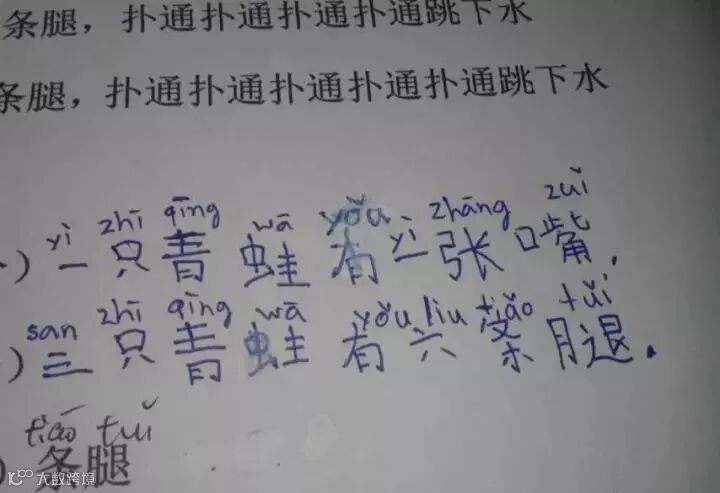 条腿，扑通扑通扑通扑通跳下水
条腿，扑通扑通扑通扑通扑通跳下水
yì zhī qīng wā yǒu yì zhāng zuǐ
)一只青蛙有一张嘴.
san zhī qīng wā yǒu liu tiáo tuǐ
)三只青蛙有六条腿.
tiáo tuǐ
)条腿
大数跨境